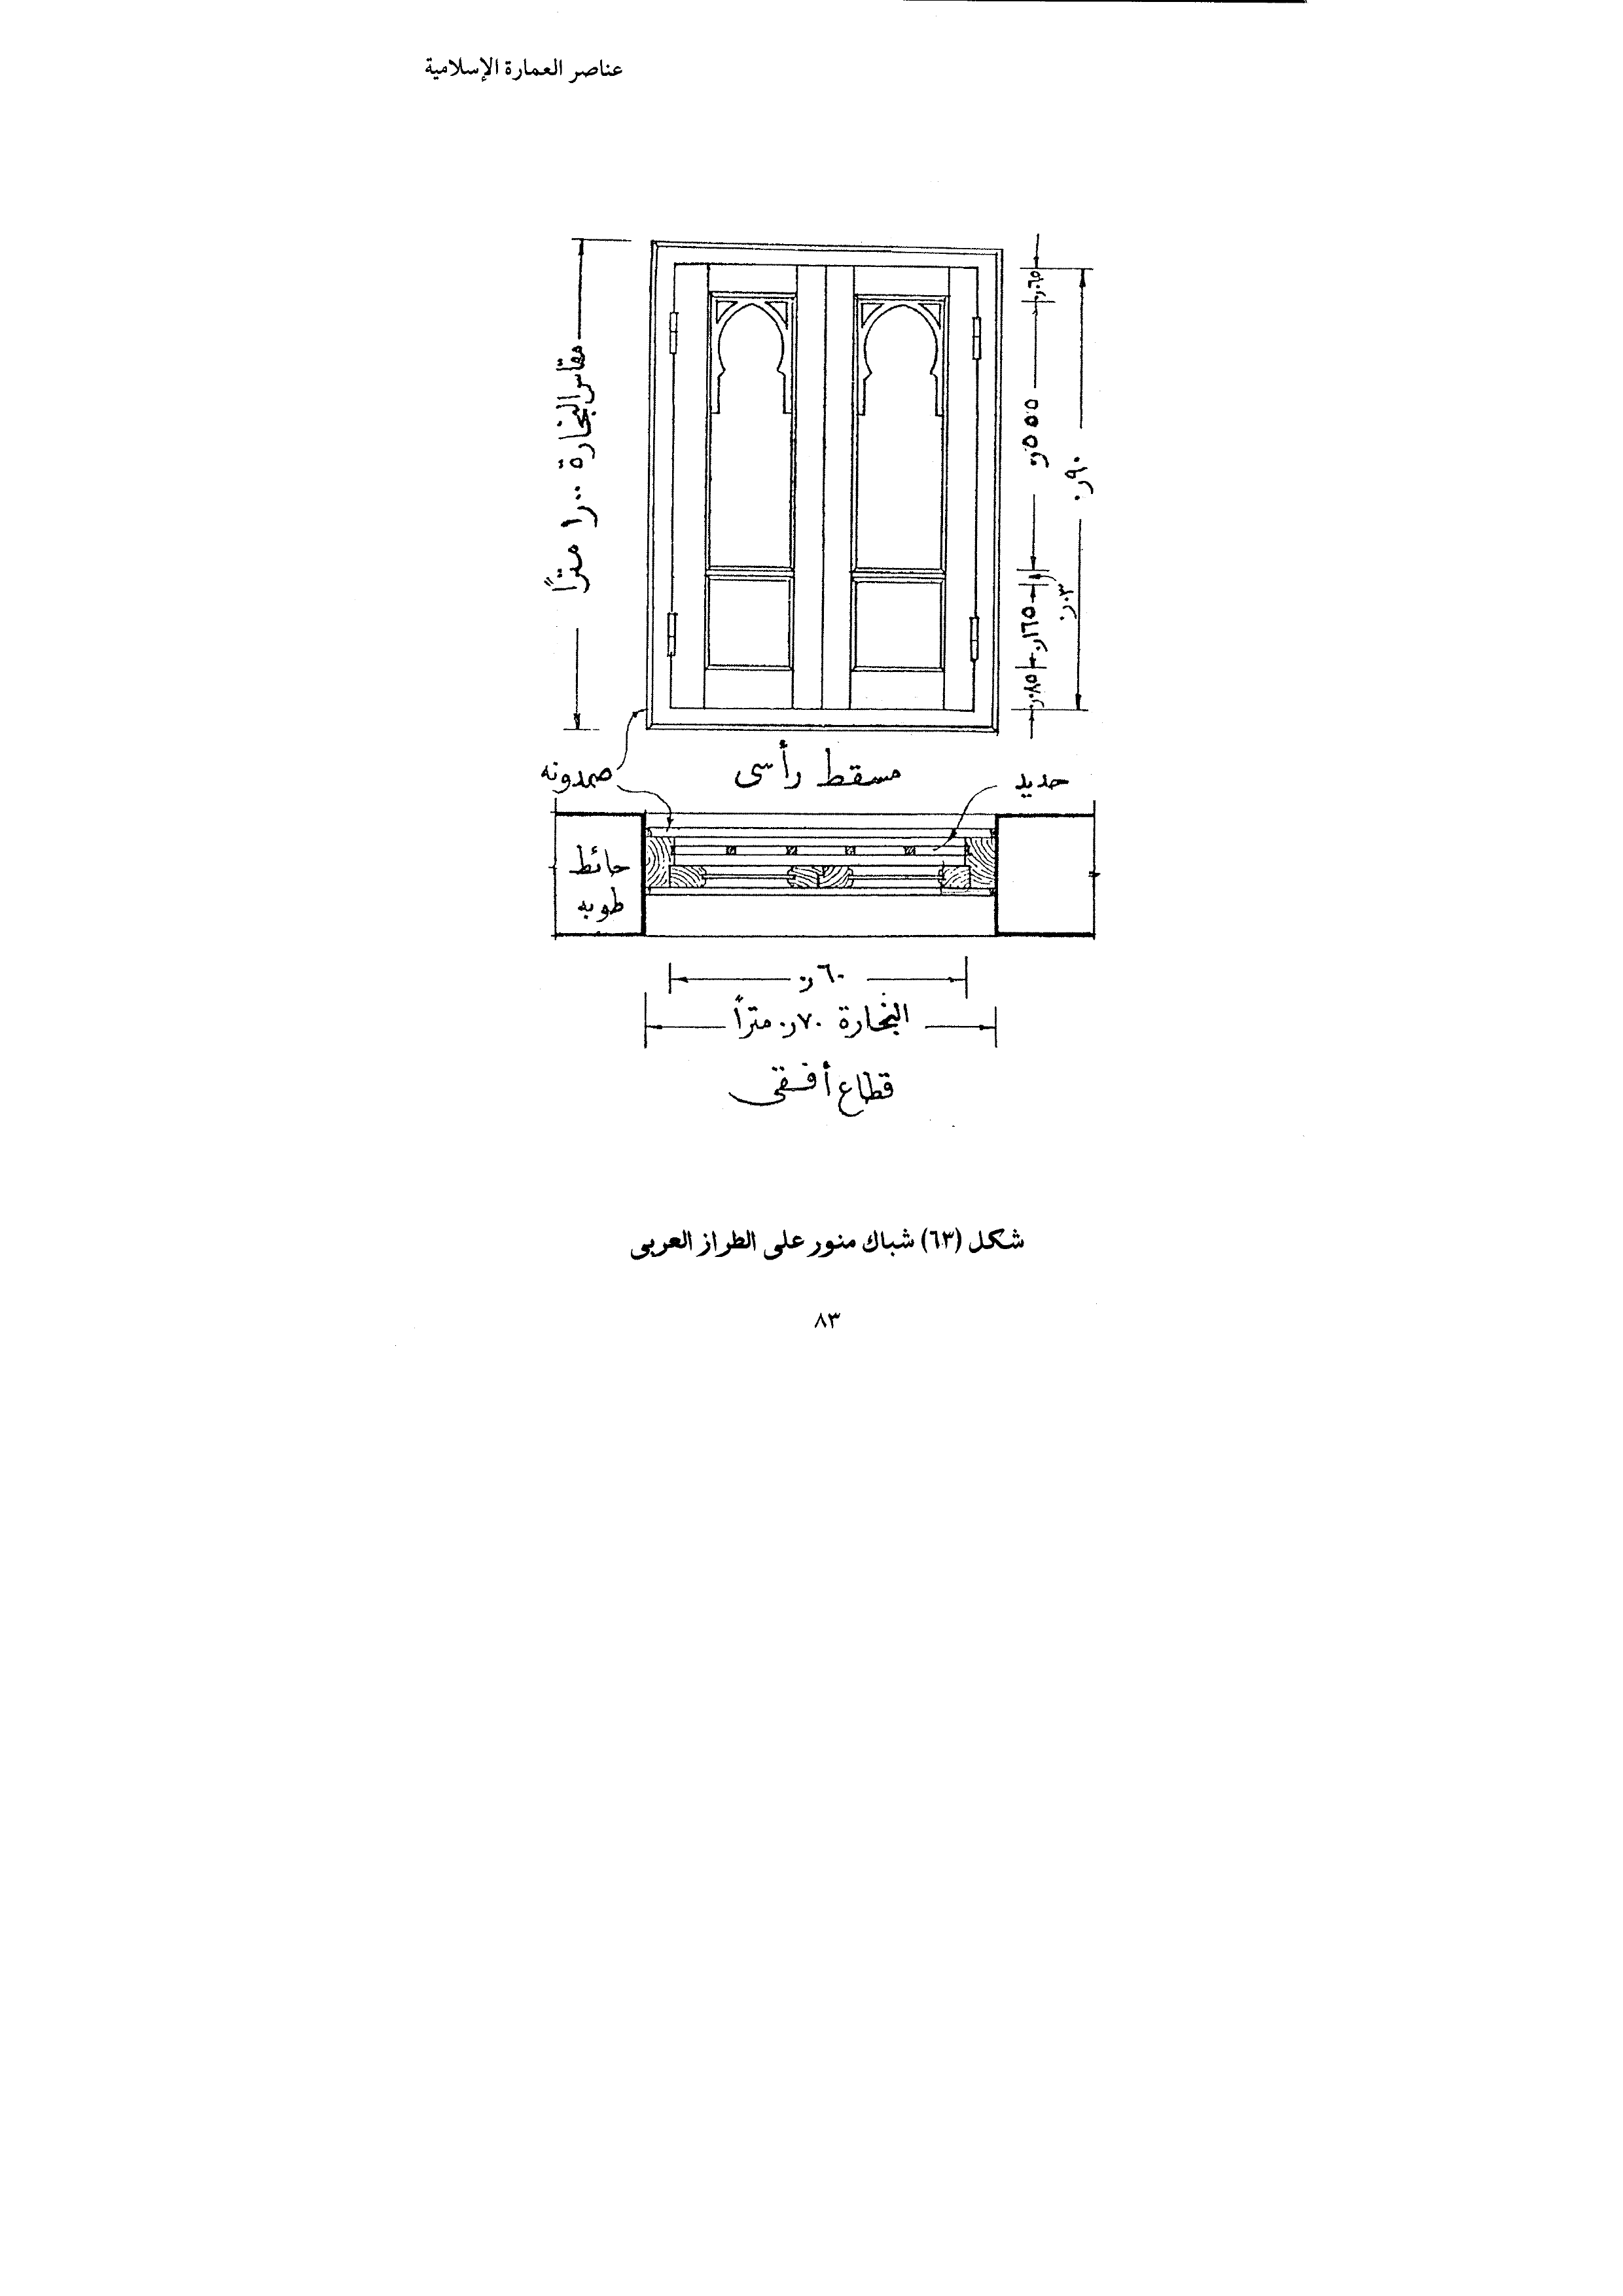 عناصر العمارة الإسلامية
مقاس النجارة ١٫٠٠ متراً
٠٫٠٦٥
٠٫٥٥٥
٠٫٩٠
٠٫٠٣
٠٫١٦٥
٠٫٠٨٥
مسقط رأسى
صمدونه
حديد
حائط
طوبه
٠٫٦٠
النجارة ٠٫٧٠ متراً
قطاع أفقى
شكل (٦٣) شباك منور على الطراز العربى
٨٣